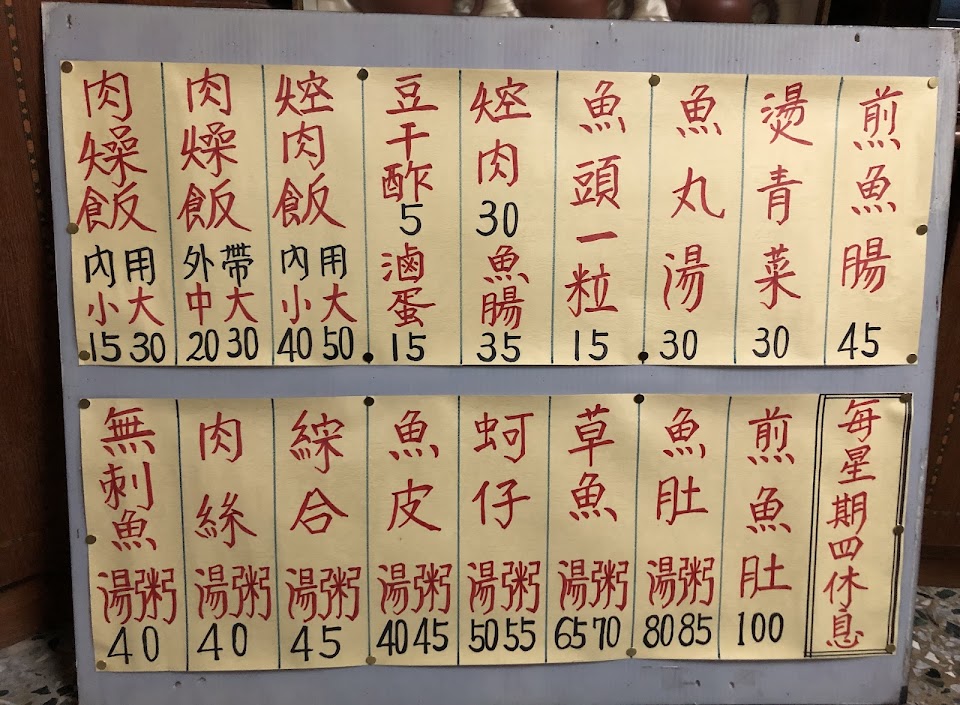 肉燥飯 內用 小大 15 30
肉燥飯 外帶 中大 20 30
焢肉飯 內用 小大 40 50
豆干酢 5 滷蛋 15
焢肉 30 魚腸 35
魚頭一粒 15
魚丸湯 30
燙青菜 30
煎魚腸 45
無刺魚 湯粥 40
肉絲 湯粥 40
綜合 湯粥 45
魚皮 湯粥 40 45
蚵仔 湯粥 50 55
草魚 湯粥 65 70
魚肚 湯粥 80 85
煎魚肚 100
每星期四休息